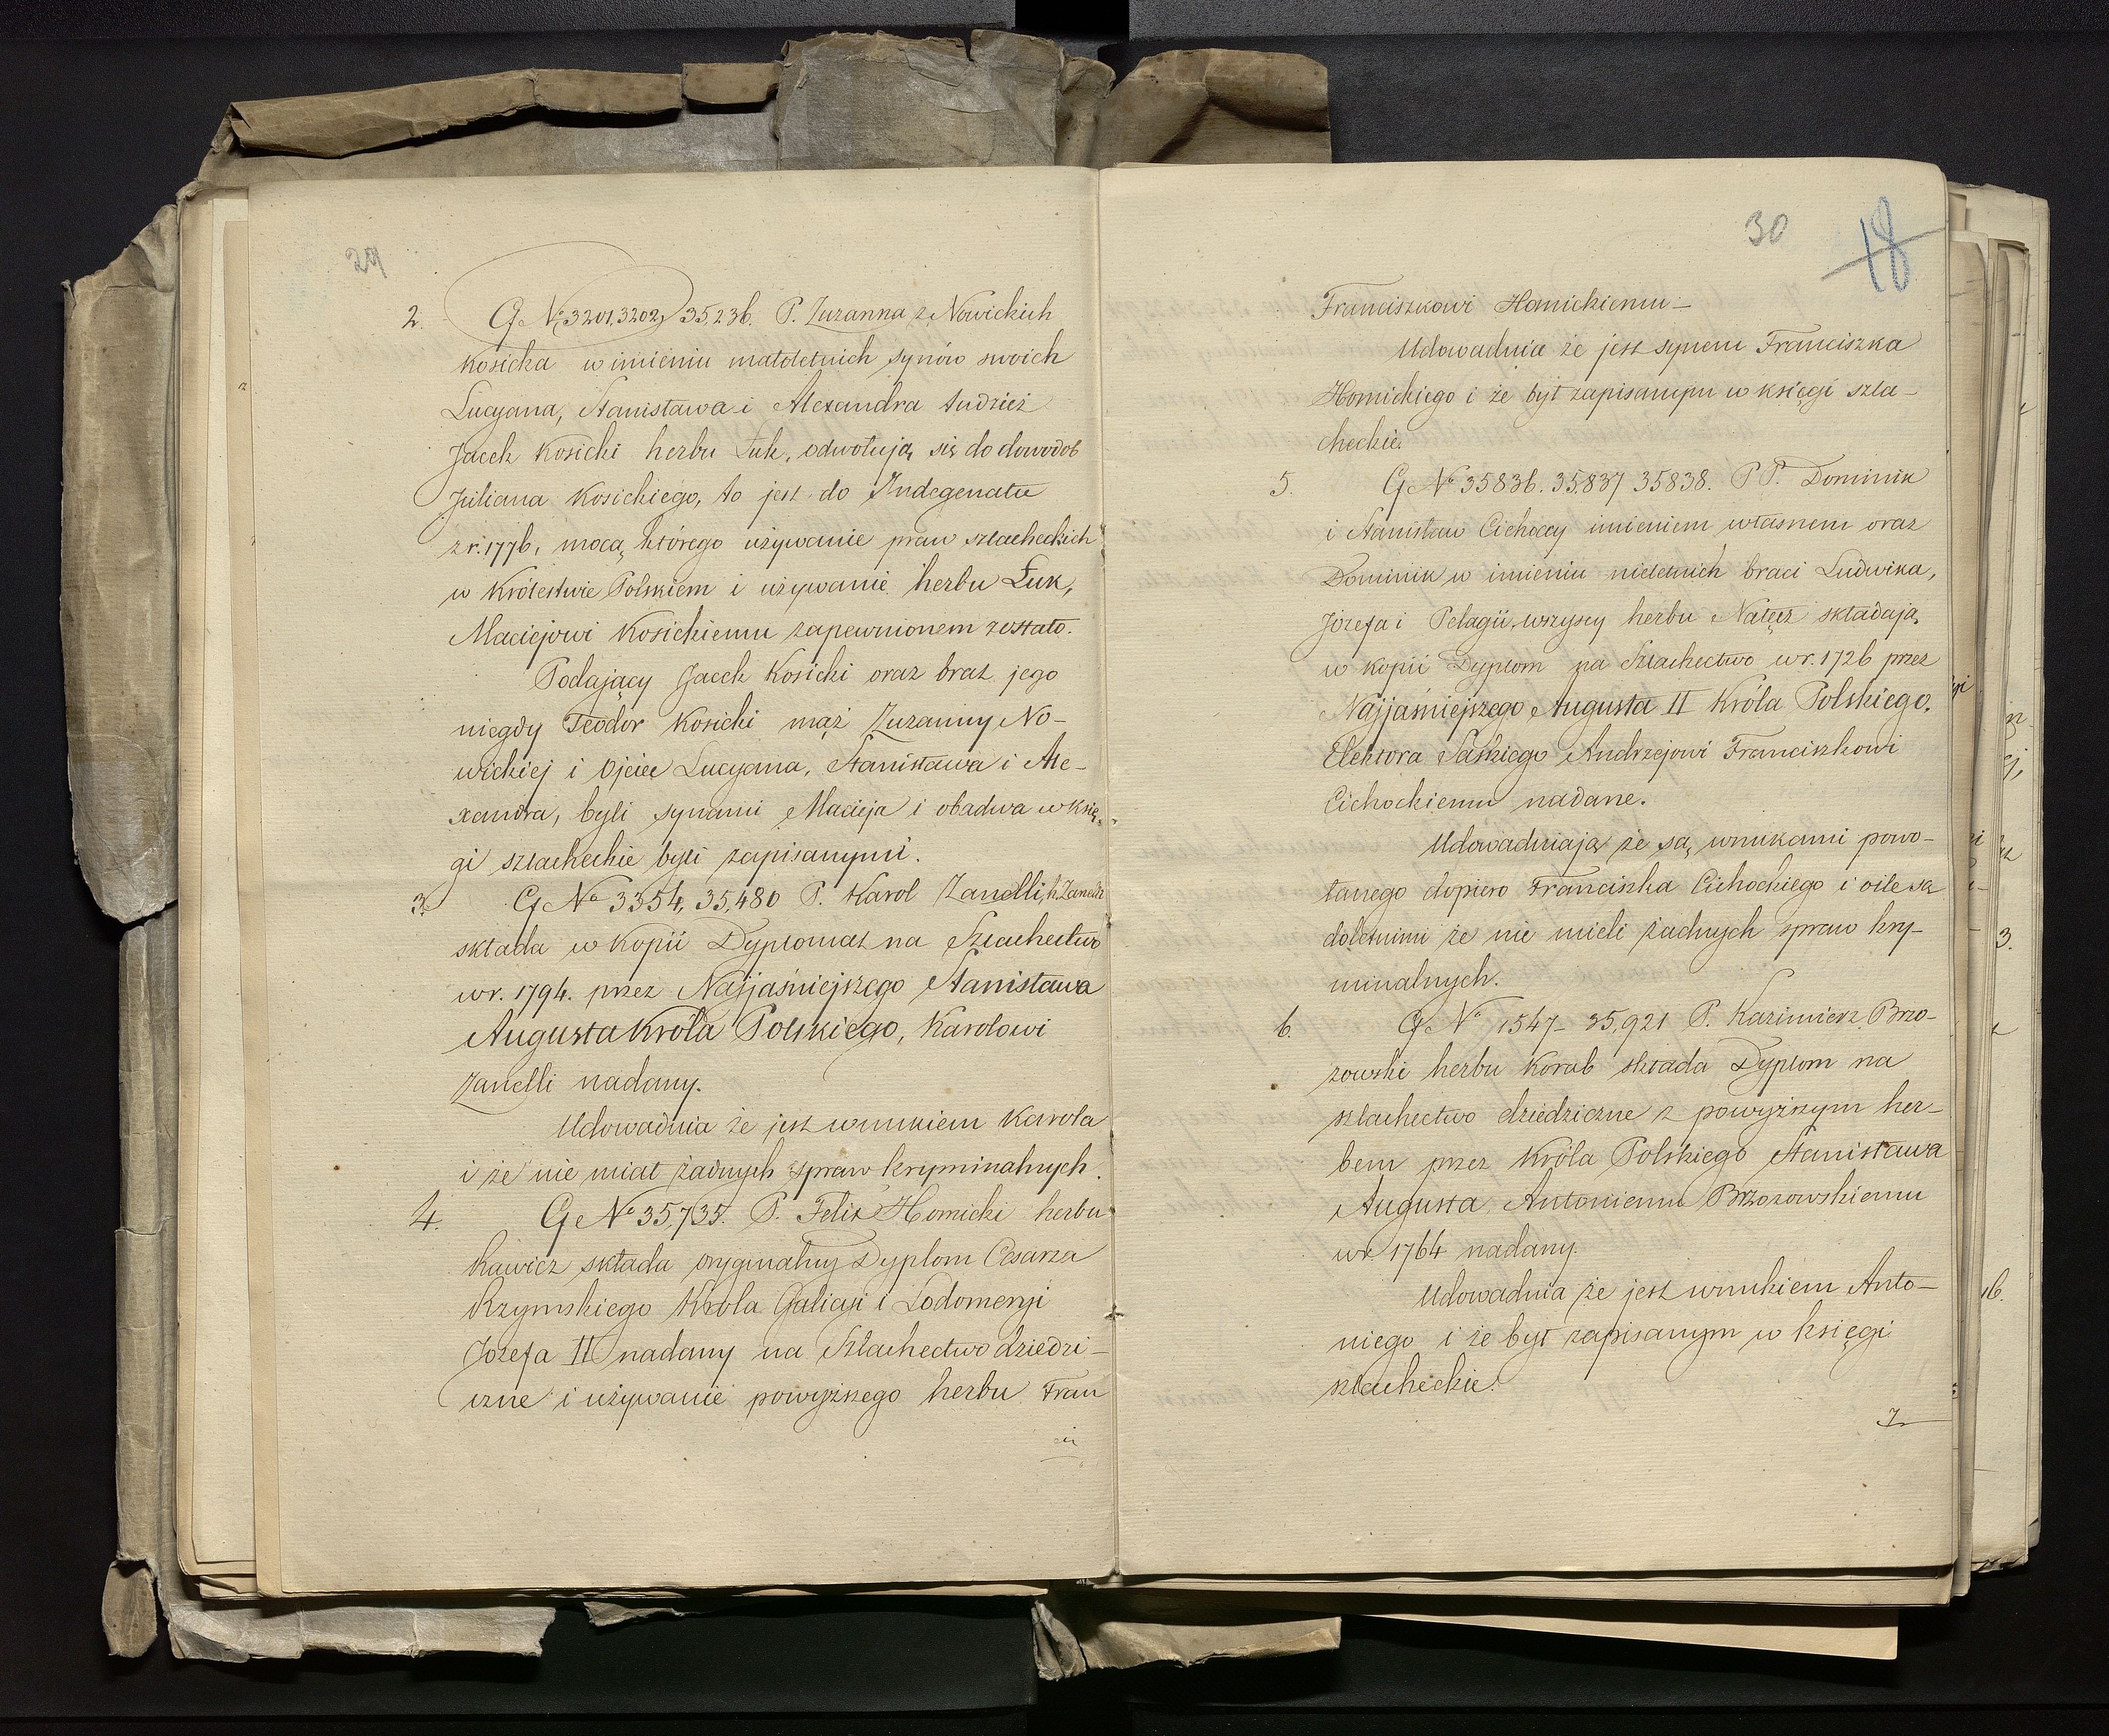 29
2. G № 3201, 3202, 35,236. P. Zuzanna z Nowickich
Kosicka w imieniu małoletnich synów swoich
Lucyana, Stanisława i Alexandra tudzież
Jacek Kosicki herbu Łuk, odwołują się do dowodob
Juliana Kosickiego, to jest do Indegenatu
z r. 1776, mocą którego używanie praw szlacheckich
w Królestwie Polskiem i używanie herbu Łuk,
Maciejowi Kosickiemu zapewnionem zostało.
Podający Jacek Kosicki oraz brat jego
niegdy Teodor Kosicki mąż Zuzanny No-
wickiej i Ojciec Lucyana, Stanisława i Ale-
xandra, byli synami Macieja i obadwa w księ-
gi szlacheckie byli zapisanymi.
3. G № 3354, 35,480 P. Karol Zanelli, h. Zanelli
składa w kopii Dyplomat na Szlachectwo
w r. 1794. przez Najjaśniejszego Stanisława
Augusta Króla Polskiego, Karolowi
Zanelli nadany.
Udowadnia że jest wnukiem Karola
i że nie miał żadnych spraw kryminalnych.
4. G № 35,735. P. Felix Homicki herbu
Rawicz składa oryginalny Dyplom Cesarza
Rzymskiego Króla Galicyi i Lodomeryi
Józefa II nadany na Szlachectwo dziedzi-
czne i używanie powyższego herbu Fran
30
18
Franciszkowi Homickiemu-
Udowadnia że jest synem Franciszka
Homickiego i że był zapisanym w księgi szla-
checkie.
5. G № 35836. 35.837 35838. P P. Dominik
i Stanisław Cichoccy imieniem własnem oraz
Dominik w imieniu nieletnich braci Ludwika,
Józefa i Pelagii, wszyscy herbu Nałęcz składają
w kopii Dyplom na Szlachectwo w r. 1726 przez
Najjaśniejszego Augusta II Króla Polskiego.
Elektora Saskiego Andrzejowi Franciszkowi
Cichockiemu nadane.
Udowadniają że są wnukami powo-
łanego dopiero Franciszka Cichockiego i o ile są
doletnimi że nie mieli żadnych spraw kry-
minalnych.
6. G № 1547- 35,921 P. Kazimierz Brzo-
zowski herbu Korab składa Dyplom na
szlachectwo dziedziczne z powyższym her-
bem przez Króla Polskiego Stanisława
Augusta Antoniemu Brzozowskiemu
w r. 1764 nadany.
Udowadnia że jest wnukiem Anto-
niego i że był zapisanym w księgi
szlacheckie.
7